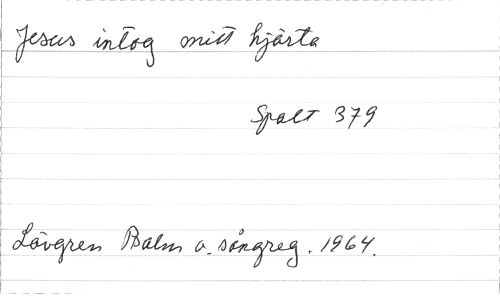 Jesus intog mitt hjärta
Spalt 379
Lövgren Psalm o. sångreg. 1964.